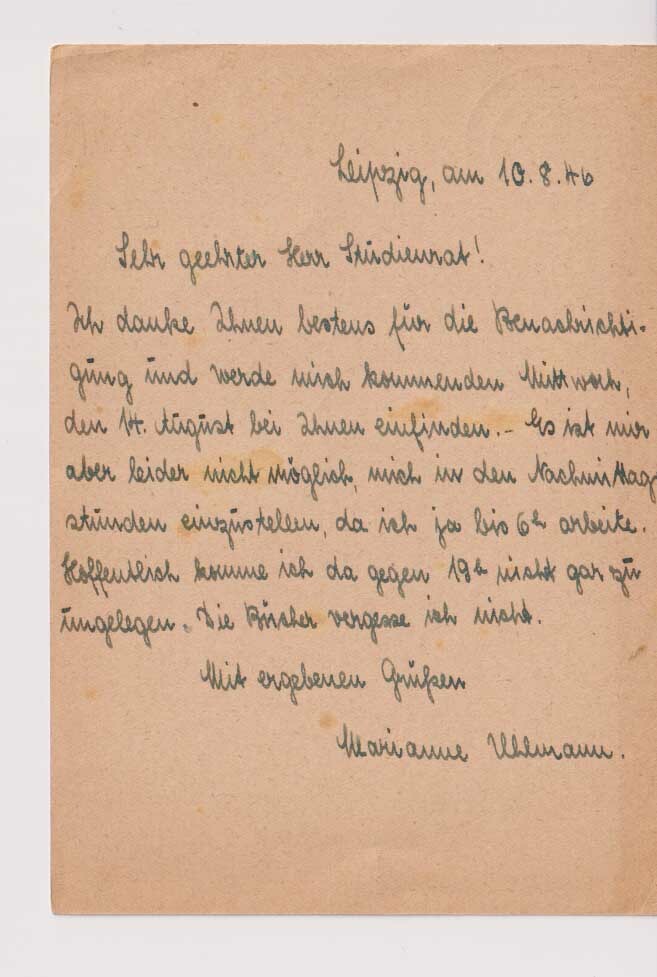 Leipzig, am 10.8.46
Sehr geehrter Herr Studienrat!
Ich danke Ihnen bestens für die Benachrichti-
gung und werde mich kommenden Mittwoch,
den 14. August bei Ihnen einfinden. – Es ist mir
aber leider nicht möglich, mich in den Nachmittag
stunden einzustellen, da ich ja bis 6h arbeite.
Hoffentlich komme ich da gegen 19h nicht gar zu
ungelegen. Die Bücher vergesse ich nicht.
Mit ergebenen Grüßen
Marianne Uhlmann.